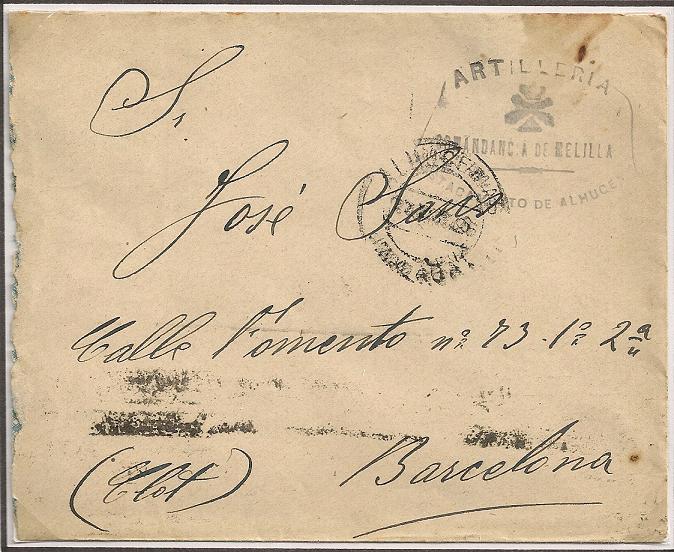 ARTILLERIA
COMANDANCIA DE MELILLA
TO DE ALMUCE
Sr.
José
Calle Fomento nº 73 · 1º 2ª
(Clot) Barcelona